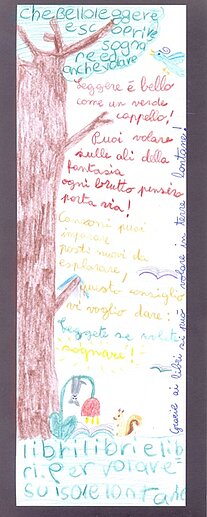 che Bello leggere
e scoprire
sogna
re ed
anche volare
Leggere è bello
come un verde
cappello!
Puoi volare
sulle ali della
fantasia
ogni brutto pensier
porta via!
Canzoni puoi
imparare
posti nuovi da
esplorare,
questo consiglio
vi voglio dare:
Leggete se volete
sognare!
Grazie ai libri si può volare in terre lontane!
libri libri e lib
ri. per volare
su isole lontane